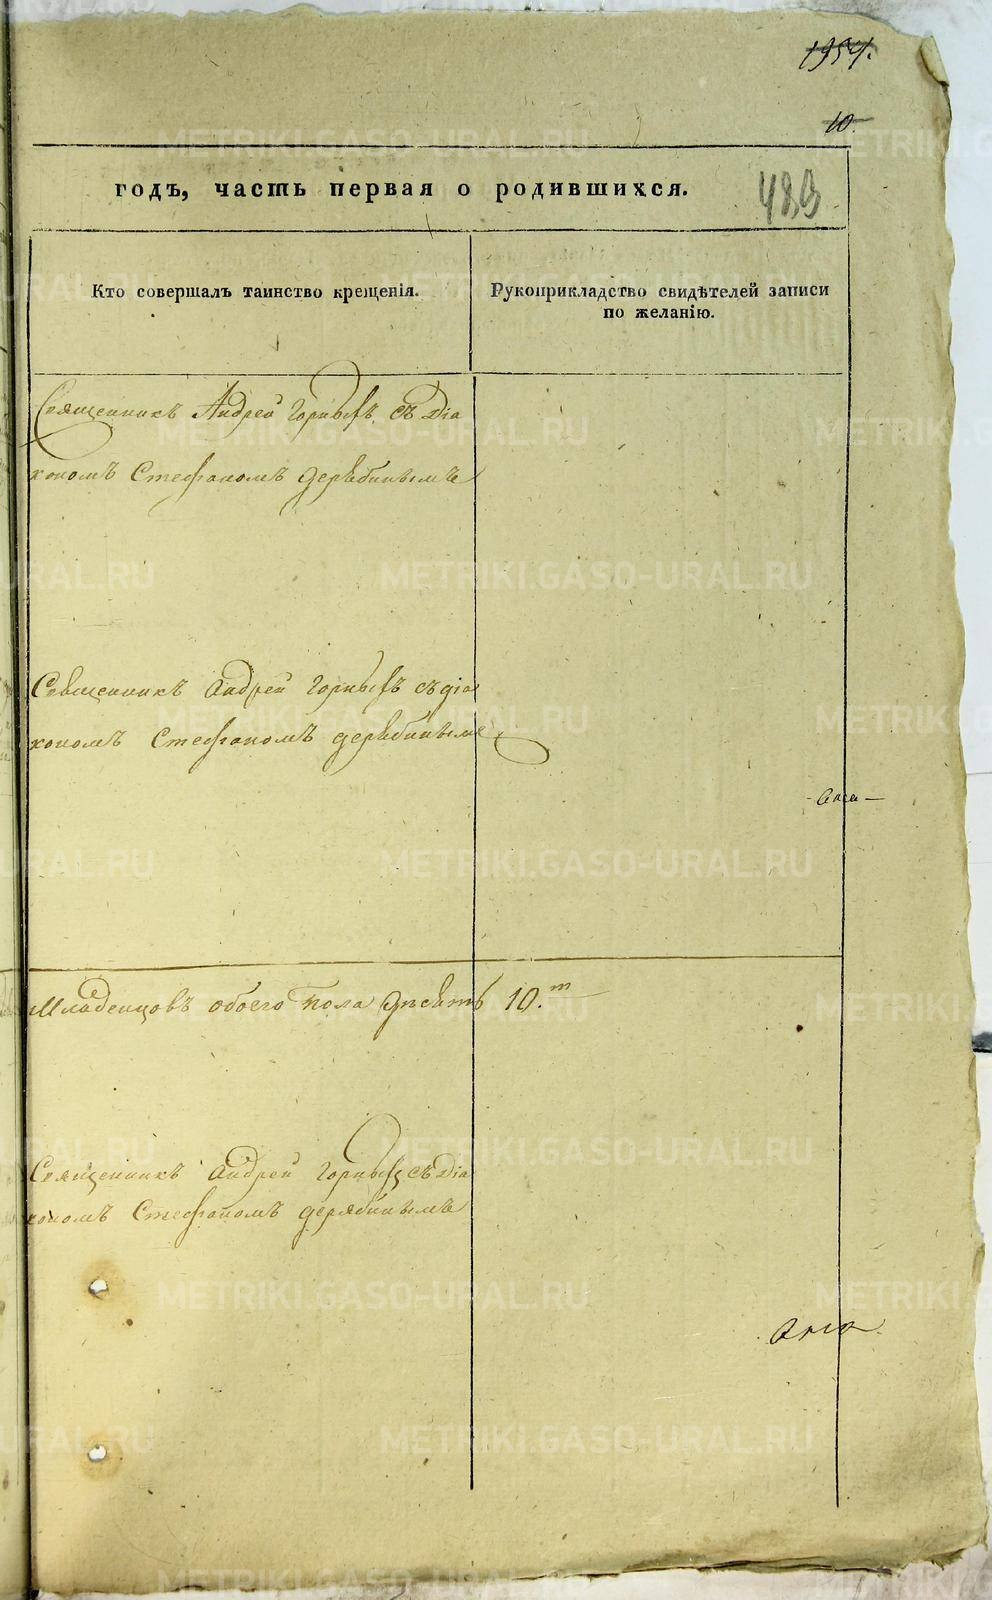 1954.
10.
годъ, часть первая о родившихся.
483
Кто совершалъ таинство крещенія.
Рукоприкладство свидѣтелей записи
по желанію.
Священникъ Андрей Горныхъ съ Діа
кономъ Стефаномъ Дерябинымъ
Священникъ Андрей Горныхъ съ діа
кономъ Стефаномъ дерябинымъ
Младенцовъ обоего пола десять 10.
Священникъ Андрей Горныхъ съ Діа
кономъ Стефаномъ дерябинымъ
METRIKI.GASO-URAL.RU